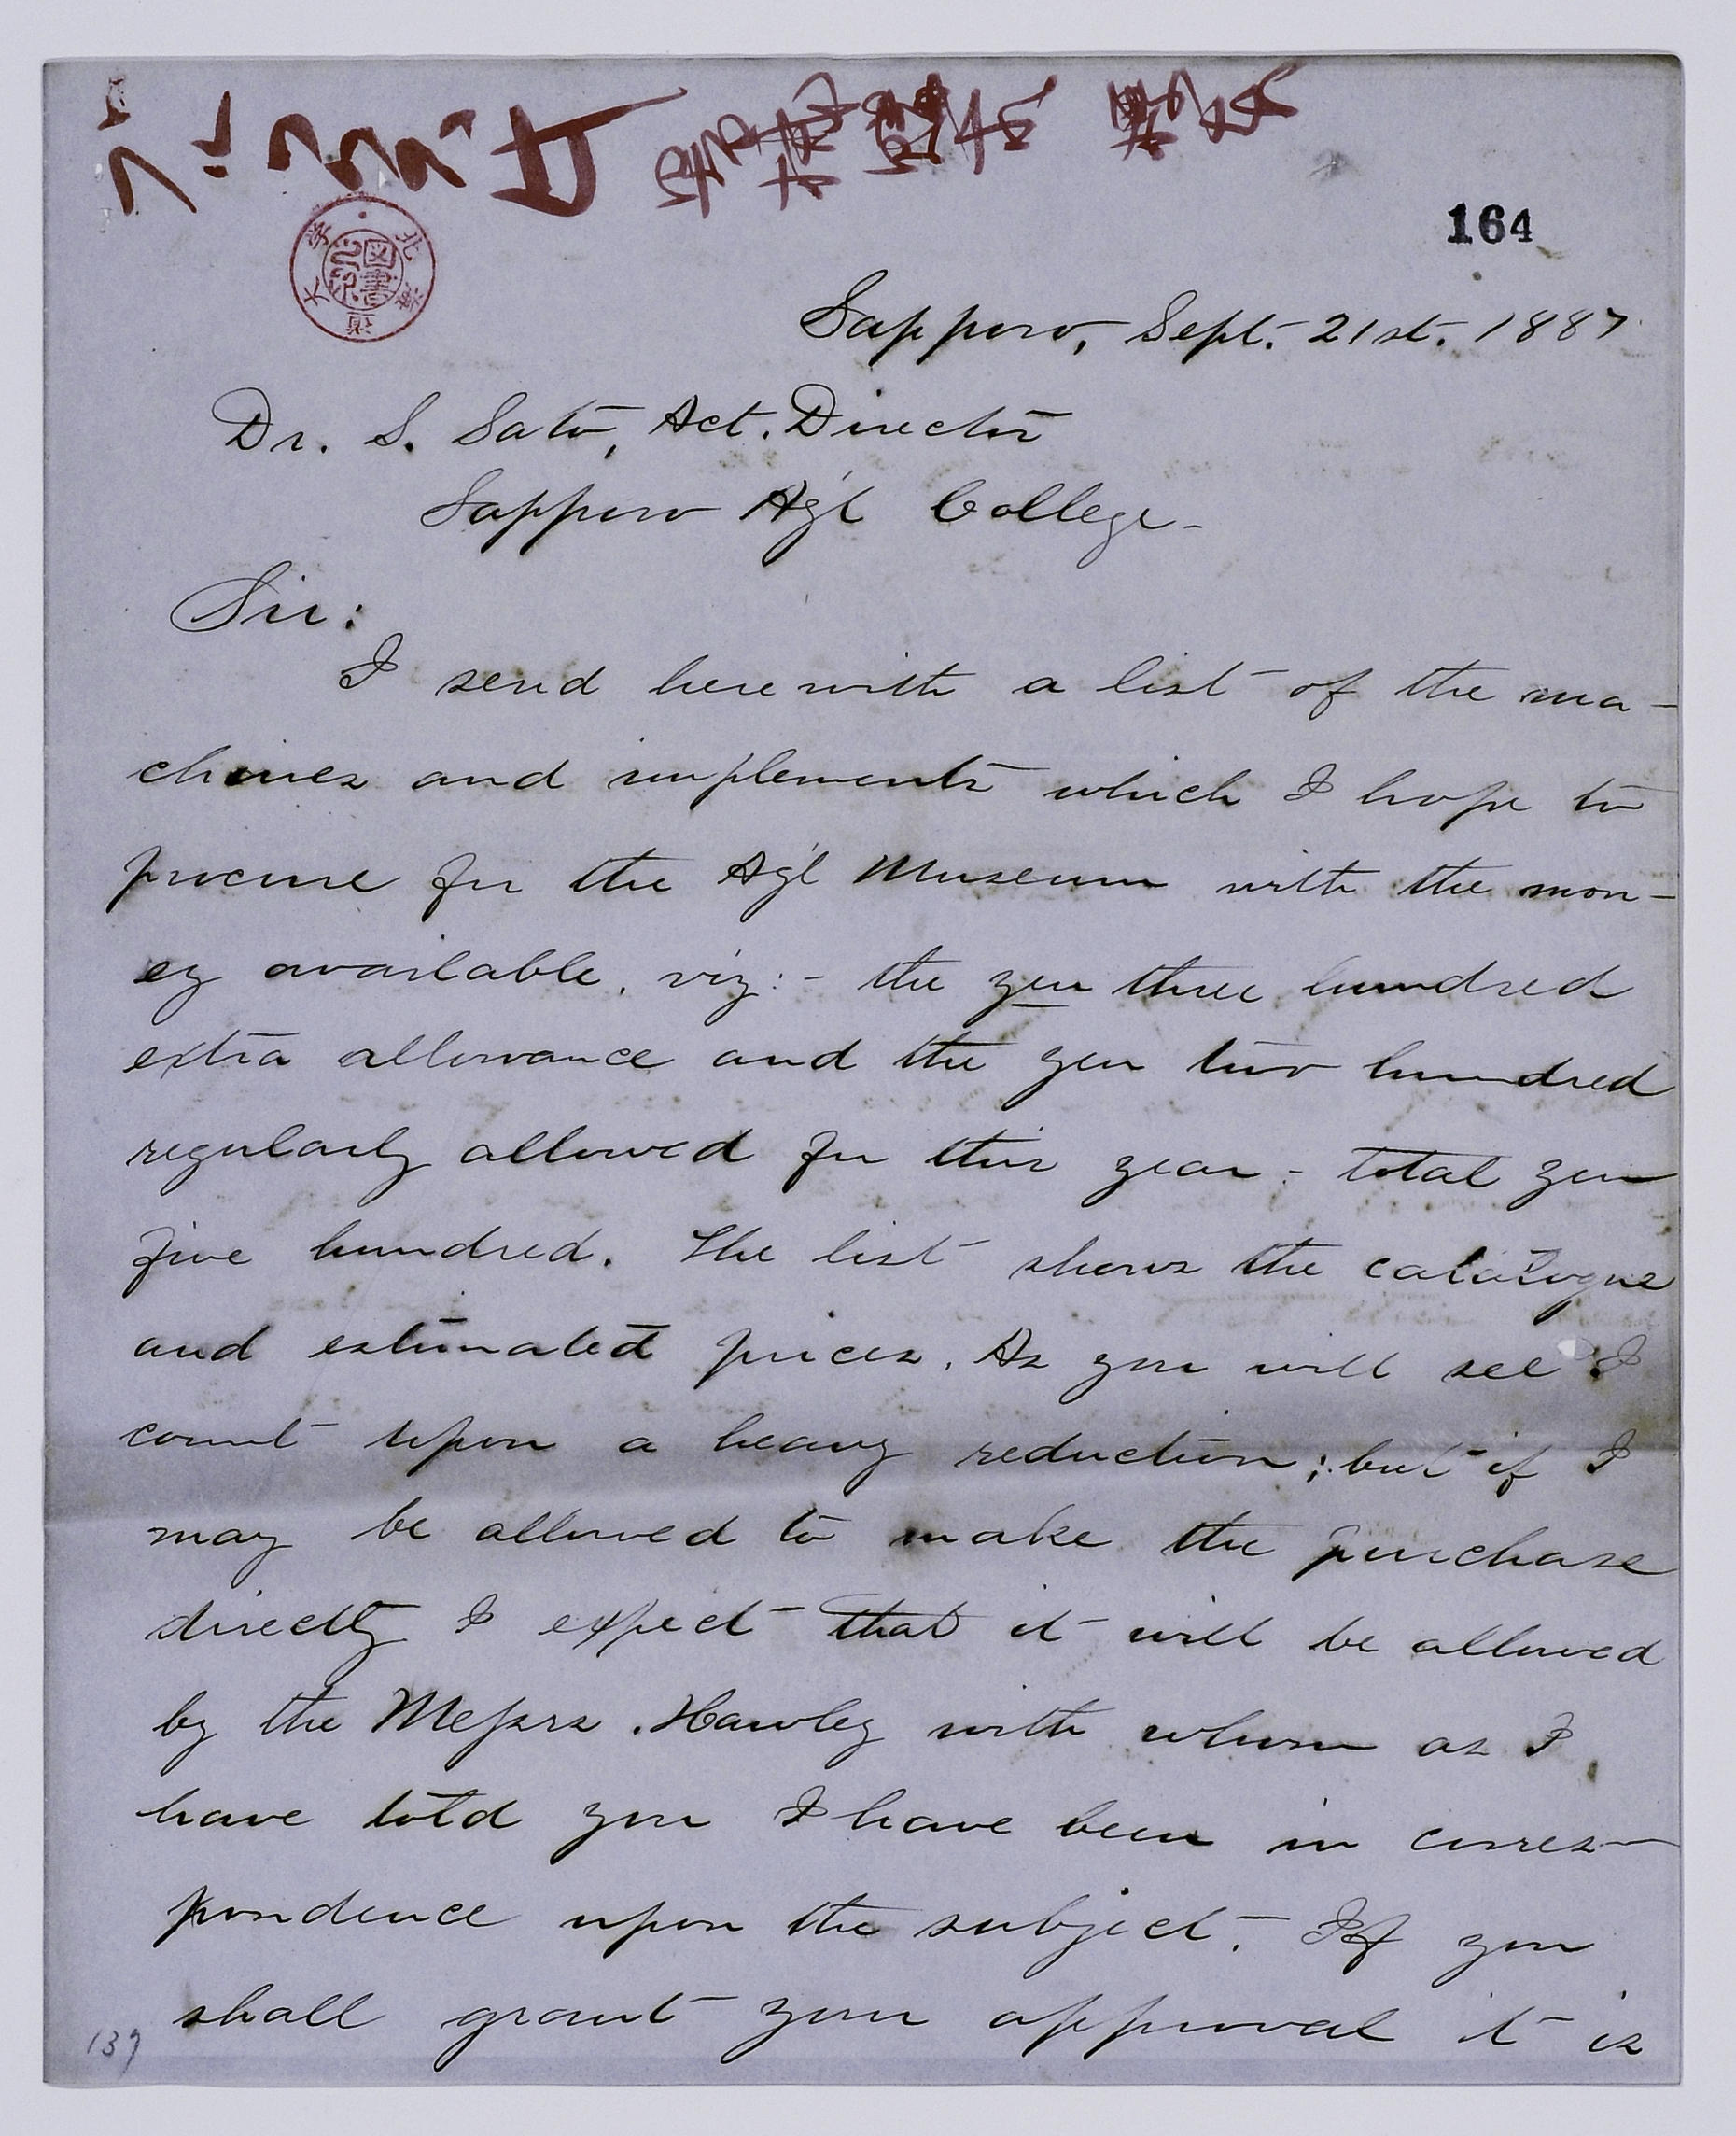 164
北海道大学
図書
Sapporo, Sept. 21st. 1887
Dr. S. Sato, Act. Director
Sapporo Ag'l College -
Sir:
I send herewith a list of the ma-
chines and implements which I hope to
procure for the Ag'l Museum with the mon-
ey available, viz: - the yen three hundred
extra allowance and the yen two hundred
regularly allowed for this year - total yen
five hundred. The list shows the catalogue
and estimated prices. As you will see I
count upon a heavy reduction; but if I
may be allowed to make the purchase
directly I expect that it will be allowed
by the Messrs. Hawley with whom as I
have told you I have been in corres-
pondence upon the subject. If you
shall grant your approval it is
137